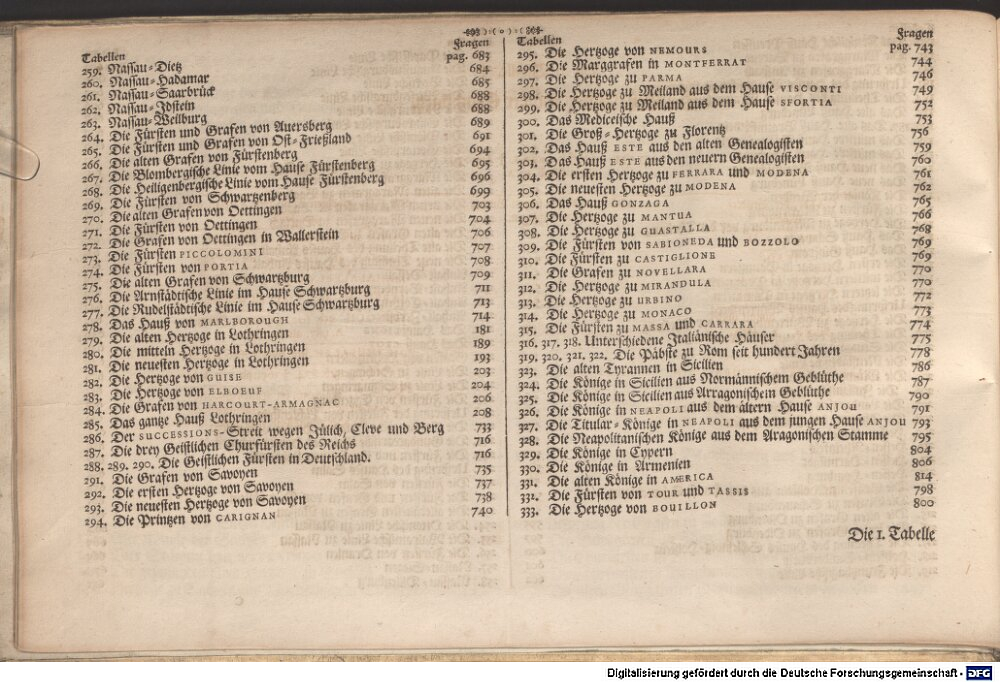 ):( o ):(
Tabellen Fragen
259. Nassau-Dietz pag. 683
260. Nassau-Hadamar 684
261. Nassau-Saarbrück 685
262. Nassau-Idstein 688
263. Nassau-Weilburg 688
264. Die Fürsten und Grafen von Auersberg 689
265. Die Fürsten und Grafen von Ost-Frießland 691
266. Die alten Grafen von Fürstenberg 694
267. Die Blombergische Linie vom Hause Fürstenberg 695
268. Die Heiligenbergische Linie vom Hause Fürstenberg 696
269. Die Fürsten von Schwartzenberg 699
270. Die alten Grafen von Oettingen 703
271. Die Fürsten von Oettingen 704
272. Die Grafen von Oettingen in Wallerstein 706
273. Die Fürsten PICCOLOMINI 707
274. Die Fürsten von PORTIA 708
275. Die alten Grafen von Schwartzburg 709
276. Die Arnstädtische Linie im Hause Schwartzburg 711
277. Die Rudelstädtische Linie im Hause Schwartzburg 713
278. Das Hauß von MARLBOROUGH 714
279. Die alten Hertzoge in Lothringen 181
280. Die mitteln Hertzoge in Lothringen 189
281. Die neuesten Hertzoge in Lothringen 193
282. Die Hertzoge von GUISE 203
283. Die Hertzoge von ELBOEUF 204
284. Die Grafen von HARCOURT-ARMAGNAC 206
285. Das gantze Hauß Lothringen 208
286. Der SUCCESSIONS-Streit wegen Jülich, Cleve und Berg 733
287. Die drey Geistlichen Churfürsten des Reichs 716
288. 289. 290. Die Geistlichen Fürsten in Deutschland. 716
291. Die Grafen von Savoyen 735
292. Die ersten Hertzoge von Savoyen 737
293. Die neuesten Hertzoge von Savoyen 738
294. Die Printzen von CARIGNAN 740
Tabellen Fragen
295. Die Hertzoge von NEMOURS pag. 743
296. Die Marggrafen in MONTFERRAT 744
297. Die Hertzoge zu PARMA 746
298. Die Hertzoge zu Meiland aus dem Hause VISCONTI 749
299. Die Hertzoge zu Meiland aus dem Hause SFORTIA 752
300. Das Mediceische Hauß 753
301. Die Groß-Hertzoge zu Florentz 756
302. Das Hauß ESTE aus den alten Genealogisten 759
303. Das Hauß ESTE aus den neuern Genealogisten 760
304. Die ersten Hertzoge zu FERRARA und MODENA 761
305. Die neuesten Hertzoge zu MODENA 762
306. Das Hauß GONZAGA 765
307. Die Hertzoge zu MANTUA 766
308. Die Hertzoge zu GUASTALLA 768
309. Die Fürsten von SABIONEDA und BOZZOLO 769
310. Die Fürsten zu CASTIGLIONE 769
311. Die Grafen zu NOVELLARA 770
312. Die Hertzoge zu MIRANDULA 770
313. Die Hertzoge zu URBINO 772
314. Die Hertzoge zu MONACO 773
315. Die Fürsten zu MASSA und CARRARA 774
316. 317. 318. Unterschiedene Italiänische Häuser 775
319. 320. 321. 322. Die Päbste zu Rom seit hundert Jahren 778
323. Die alten Tyrannen in Sicilien 786
324. Die Könige in Sicilien aus Normännischem Geblüthe 787
325. Die Könige in Sicilien aus Arragonischem Geblüthe 790
326. Die Könige in NEAPOLI aus dem ältern Hause ANJOU 791
327. Die Titular-Könige in NEAPOLI aus dem jungen Hause ANJOU 793
328. Die Neapolitanischen Könige aus dem Aragonischen Stamme 795
329. Die Könige in Cypern 804
330. Die Könige in Armenien 806
331. Die alten Könige in AMERICA 814
332. Die Fürsten von TOUR und TASSIS 798
333. Die Hertzoge von BOUILLON 800
Die 1. Tabelle
Digitalisierung gefördert durch die Deutsche Forschungsgemeinschaft - DFG